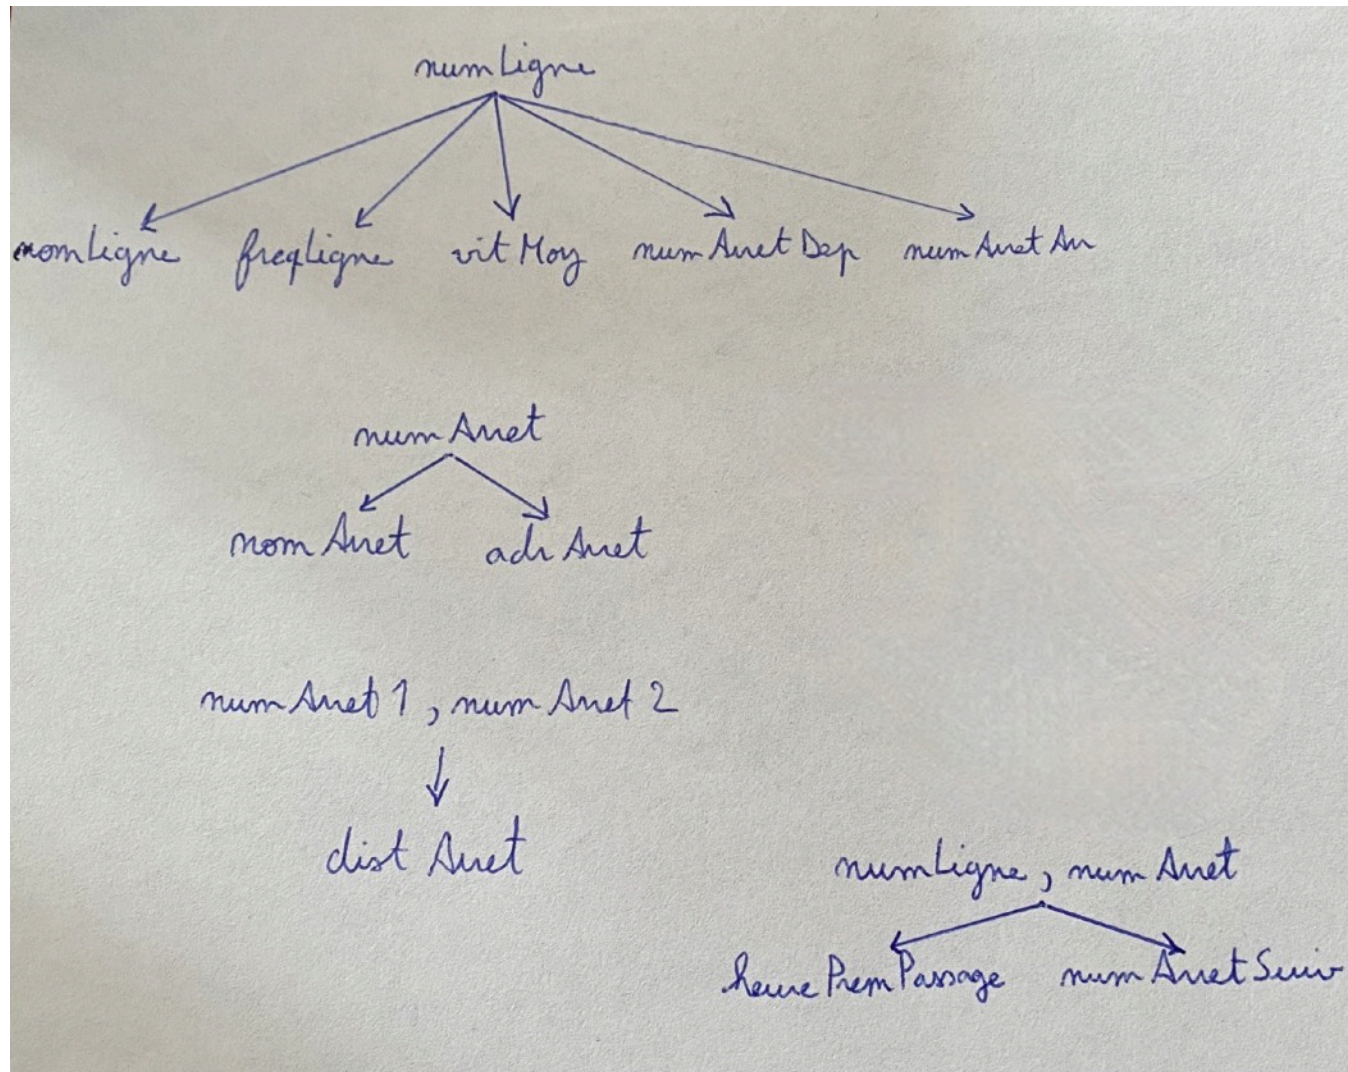 numLigne
nomLigne freqLigne vitMoy numArretDep numArretArr
numArret
nomArret adrArret
numArret1, numArret2
distArret
numLigne, numArret
heurePremPassage numArretSuiv